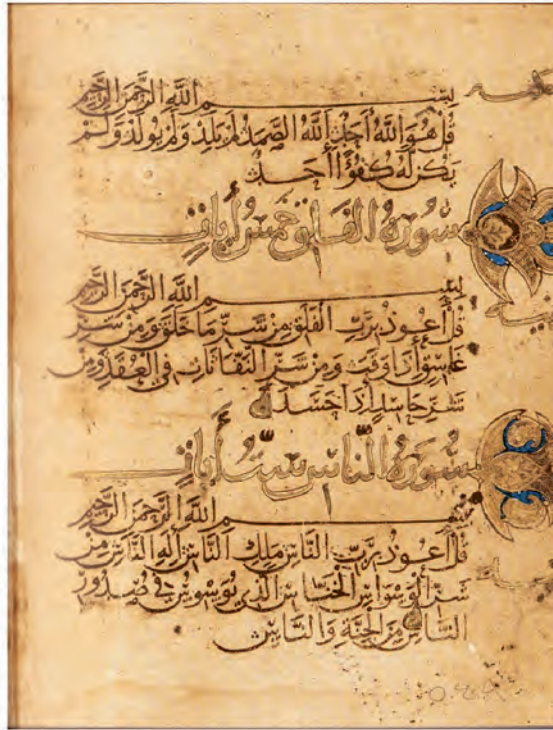 بِسْمِ اللَّهِ الرَّحْمَنِ الرَّحِيمِ
قُلْ هُوَ اللَّهُ أَحَدٌ اللَّهُ الصَّمَدُ لَمْ يَلِدْ وَلَمْ يُولَدْ وَلَمْ
يَكُنْ لَهُ كُفُوًا أَحَدٌ
سُورَةُ الْفَلَقِ خَمْسُ أَيَاتٍ
بِسْمِ اللَّهِ الرَّحْمَنِ الرَّحِيمِ
قُلْ أَعُوذُ بِرَبِّ الْفَلَقِ مِنْ شَرِّ مَا خَلَقَ وَمِنْ شَرِّ
غَاسِقٍ إِذَا وَقَبَ وَمِنْ شَرِّ النَّفَّاثَاتِ فِي الْعُقَدِ وَمِنْ
شَرِّ حَاسِدٍ إِذَا حَسَدَ
سُورَةُ النَّاسِ سِتُّ أَيَاتٍ
بِسْمِ اللَّهِ الرَّحْمَنِ الرَّحِيمِ
قُلْ أَعُوذُ بِرَبِّ النَّاسِ مَلِكِ النَّاسِ إِلَهِ النَّاسِ مِنْ
شَرِّ الْوَسْوَاسِ الْخَنَّاسِ الَّذِي يُوَسْوِسُ فِي صُدُورِ
النَّاسِ مِنَ الْجِنَّةِ وَالنَّاسِ